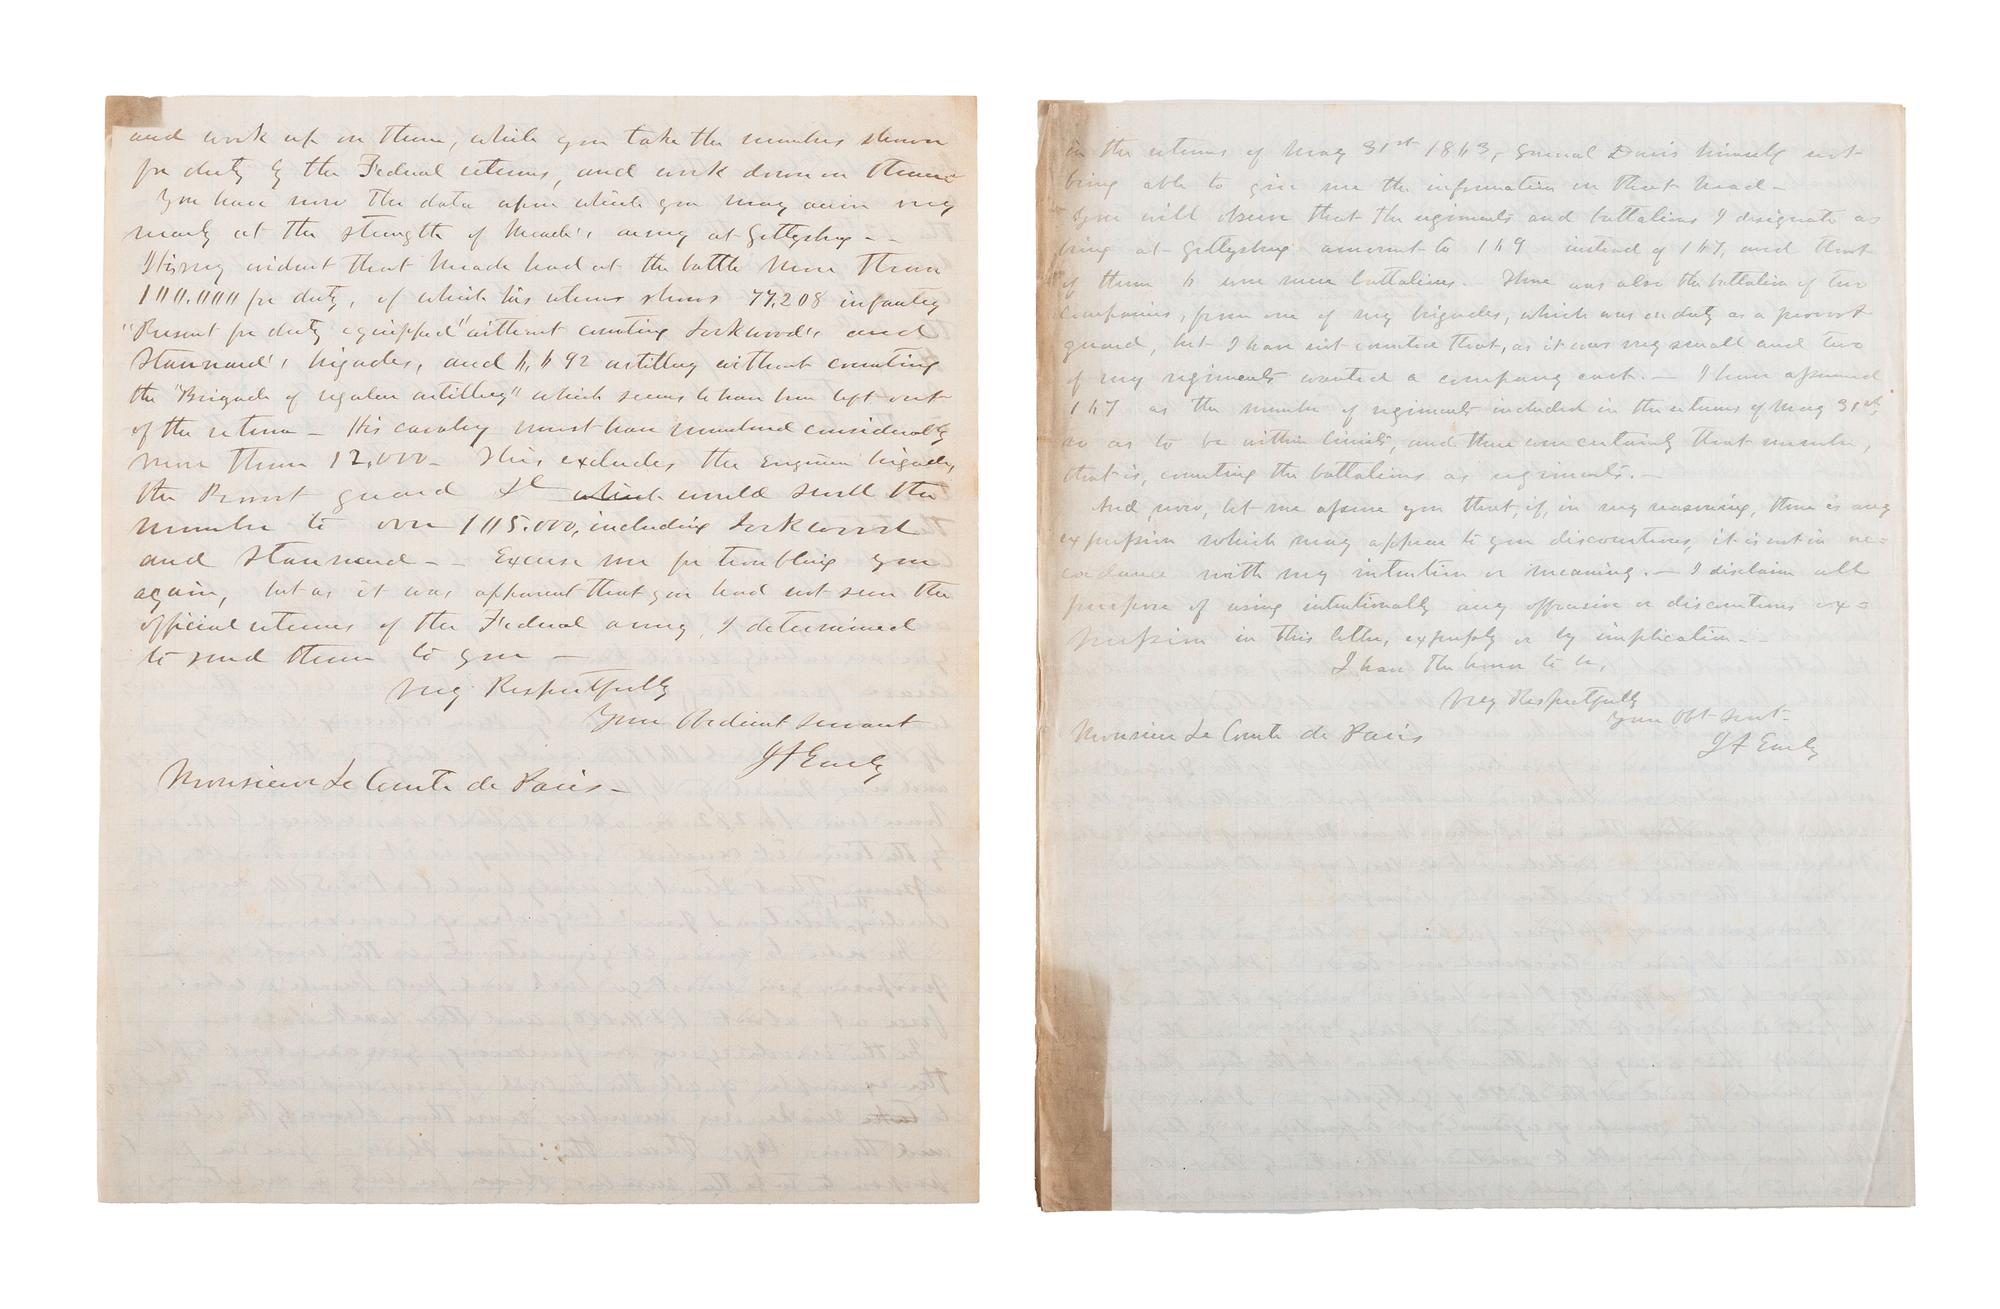 and work up on them, while you take the number shown
for duty by the Federal returns, and work down on them—
You have now the data upon which you may arrive very
nearly at the strength of Meade's army at Gettysburg - -
It is very evident that Meade had at the battle more than
100,000 for duty, of which his returns shows 77,208 infantry
"Present for duty equipped" without counting Lockwood's and
Stannard's brigades, and 6,692 artillery without counting
the "Brigade of regular artillery" which seems to have been left out
of the return - His cavalry must have numbered considerably
more than 12,000 - This excludes the Engineer brigade,
the Provost guard &c which would swell the
number to over 105,000, including Lockwood
and Stannard - - Excuse me for troubling you
again, but as it was apparent that you had not seen the
official returns of the Federal army, I determined
to send them to you —
Very Respectfully
Your Obedient servant
J A Early
Monsieur Le Comte de Paris -
in the returns of May 31st 1863, General Davis himself not
being able to give me the information on that head -
You will observe that the regiments and battalions I designate as
being at Gettysburg amount to 169 instead of 167, and that
of them 6 were mere battalions. There was also the battalion of two
companies, from one of my brigades, which was on duty as a provost
guard, but I have not counted that, as it was very small and two
of my regiments wanted a company each. — I have assumed
167 as the number of regiments included in the returns of May 31st,
so as to be within limits, and there were certainly that number,
that is, counting the battalions as regiments. -
And, now, let me assure you that, if, in my reasoning, there is any
expression which may appear to you discourteous, it is not in ac=
cordance with my intention or meaning. — I disclaim all
purpose of using intentionally any offensive or discourteous ex=
pression in this letter, expressly or by implication - -
I have the honor to be,
Very Respectfully
Your Obt Servt -
J A Early
Monsieur Le Comte de Paris